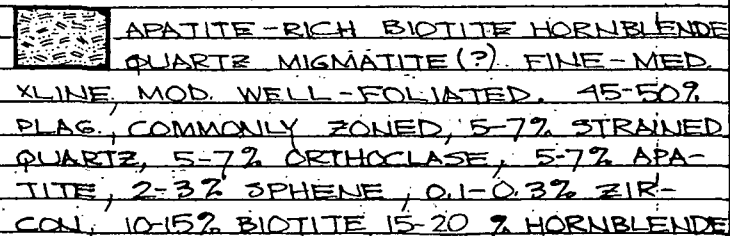 APATITE-RICH BIOTITE HORNBLENDE
QUARTZ MIGMATITE(?). FINE-MED.
XLINE, MOD. WELL-FOLIATED. 45-50%
PLAG., COMMONLY ZONED, 5-7% STRAINED
QUARTZ, 5-7% ORTHOCLASE, 5-7% APA-
TITE, 2-3% SPHENE, 0.1-0.3% ZIR-
CON, 10-15% BIOTITE 15-20 % HORNBLENDE